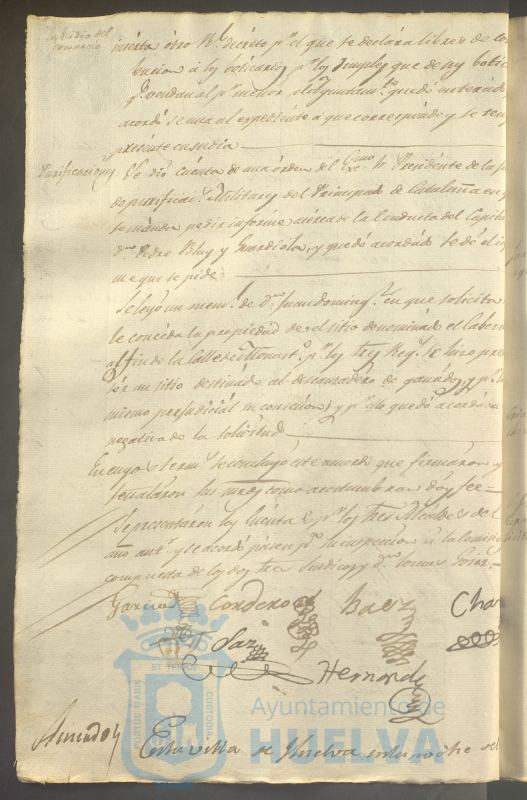 Subsidio del
comercio
inserta otro Rl. decreto pr. el que se declara libres de
bucion á los boticarios pr. los simples que de sus
qe. vendan al pr. menor, el Ayuntam.to quedó enterado
acordó se una al expediente á que corresponde y se
presente en su dia
Purificaciones
Se dió cuenta de una órden del Exmo. Sr. Presidente de la
de purificac.s Militares del Principado de Cataluña en
se manda pedir informe acerca de la conducta del
dn. Pedro y Guardiola, y quedó acordado se dé el
me que se pide
Se leyó un mem.l de dn. Juan Doming.z en que solicita
le conceda la propiedad del sitio denominado el
al fin de la Calle de Monast.o pr. los tres Reys. se
ser un sitio destinado al descansadero de ganados, y pr. lo
mismo perjudicial su concesion; y pr. ello quedó acordada
negativa de la solicitud
En cuyos term.s se concluyó este acuerdo que firmaron y
señalaron sus mrds. como acostumbran doy fee
Se presentaron las cuentas pr. los tres Alcaldes del
año ant.r y se acordó pasen pa. su inspeccion á la
compuesta de los dos Sindicos y dn. Tomas
Garcia Cordero Baez
Saiz
Hernand
ET TERRAE
PORTUS MARIS
CUSTODIA
Ayuntamiento de
HUELVA
En la villa de Huelva en